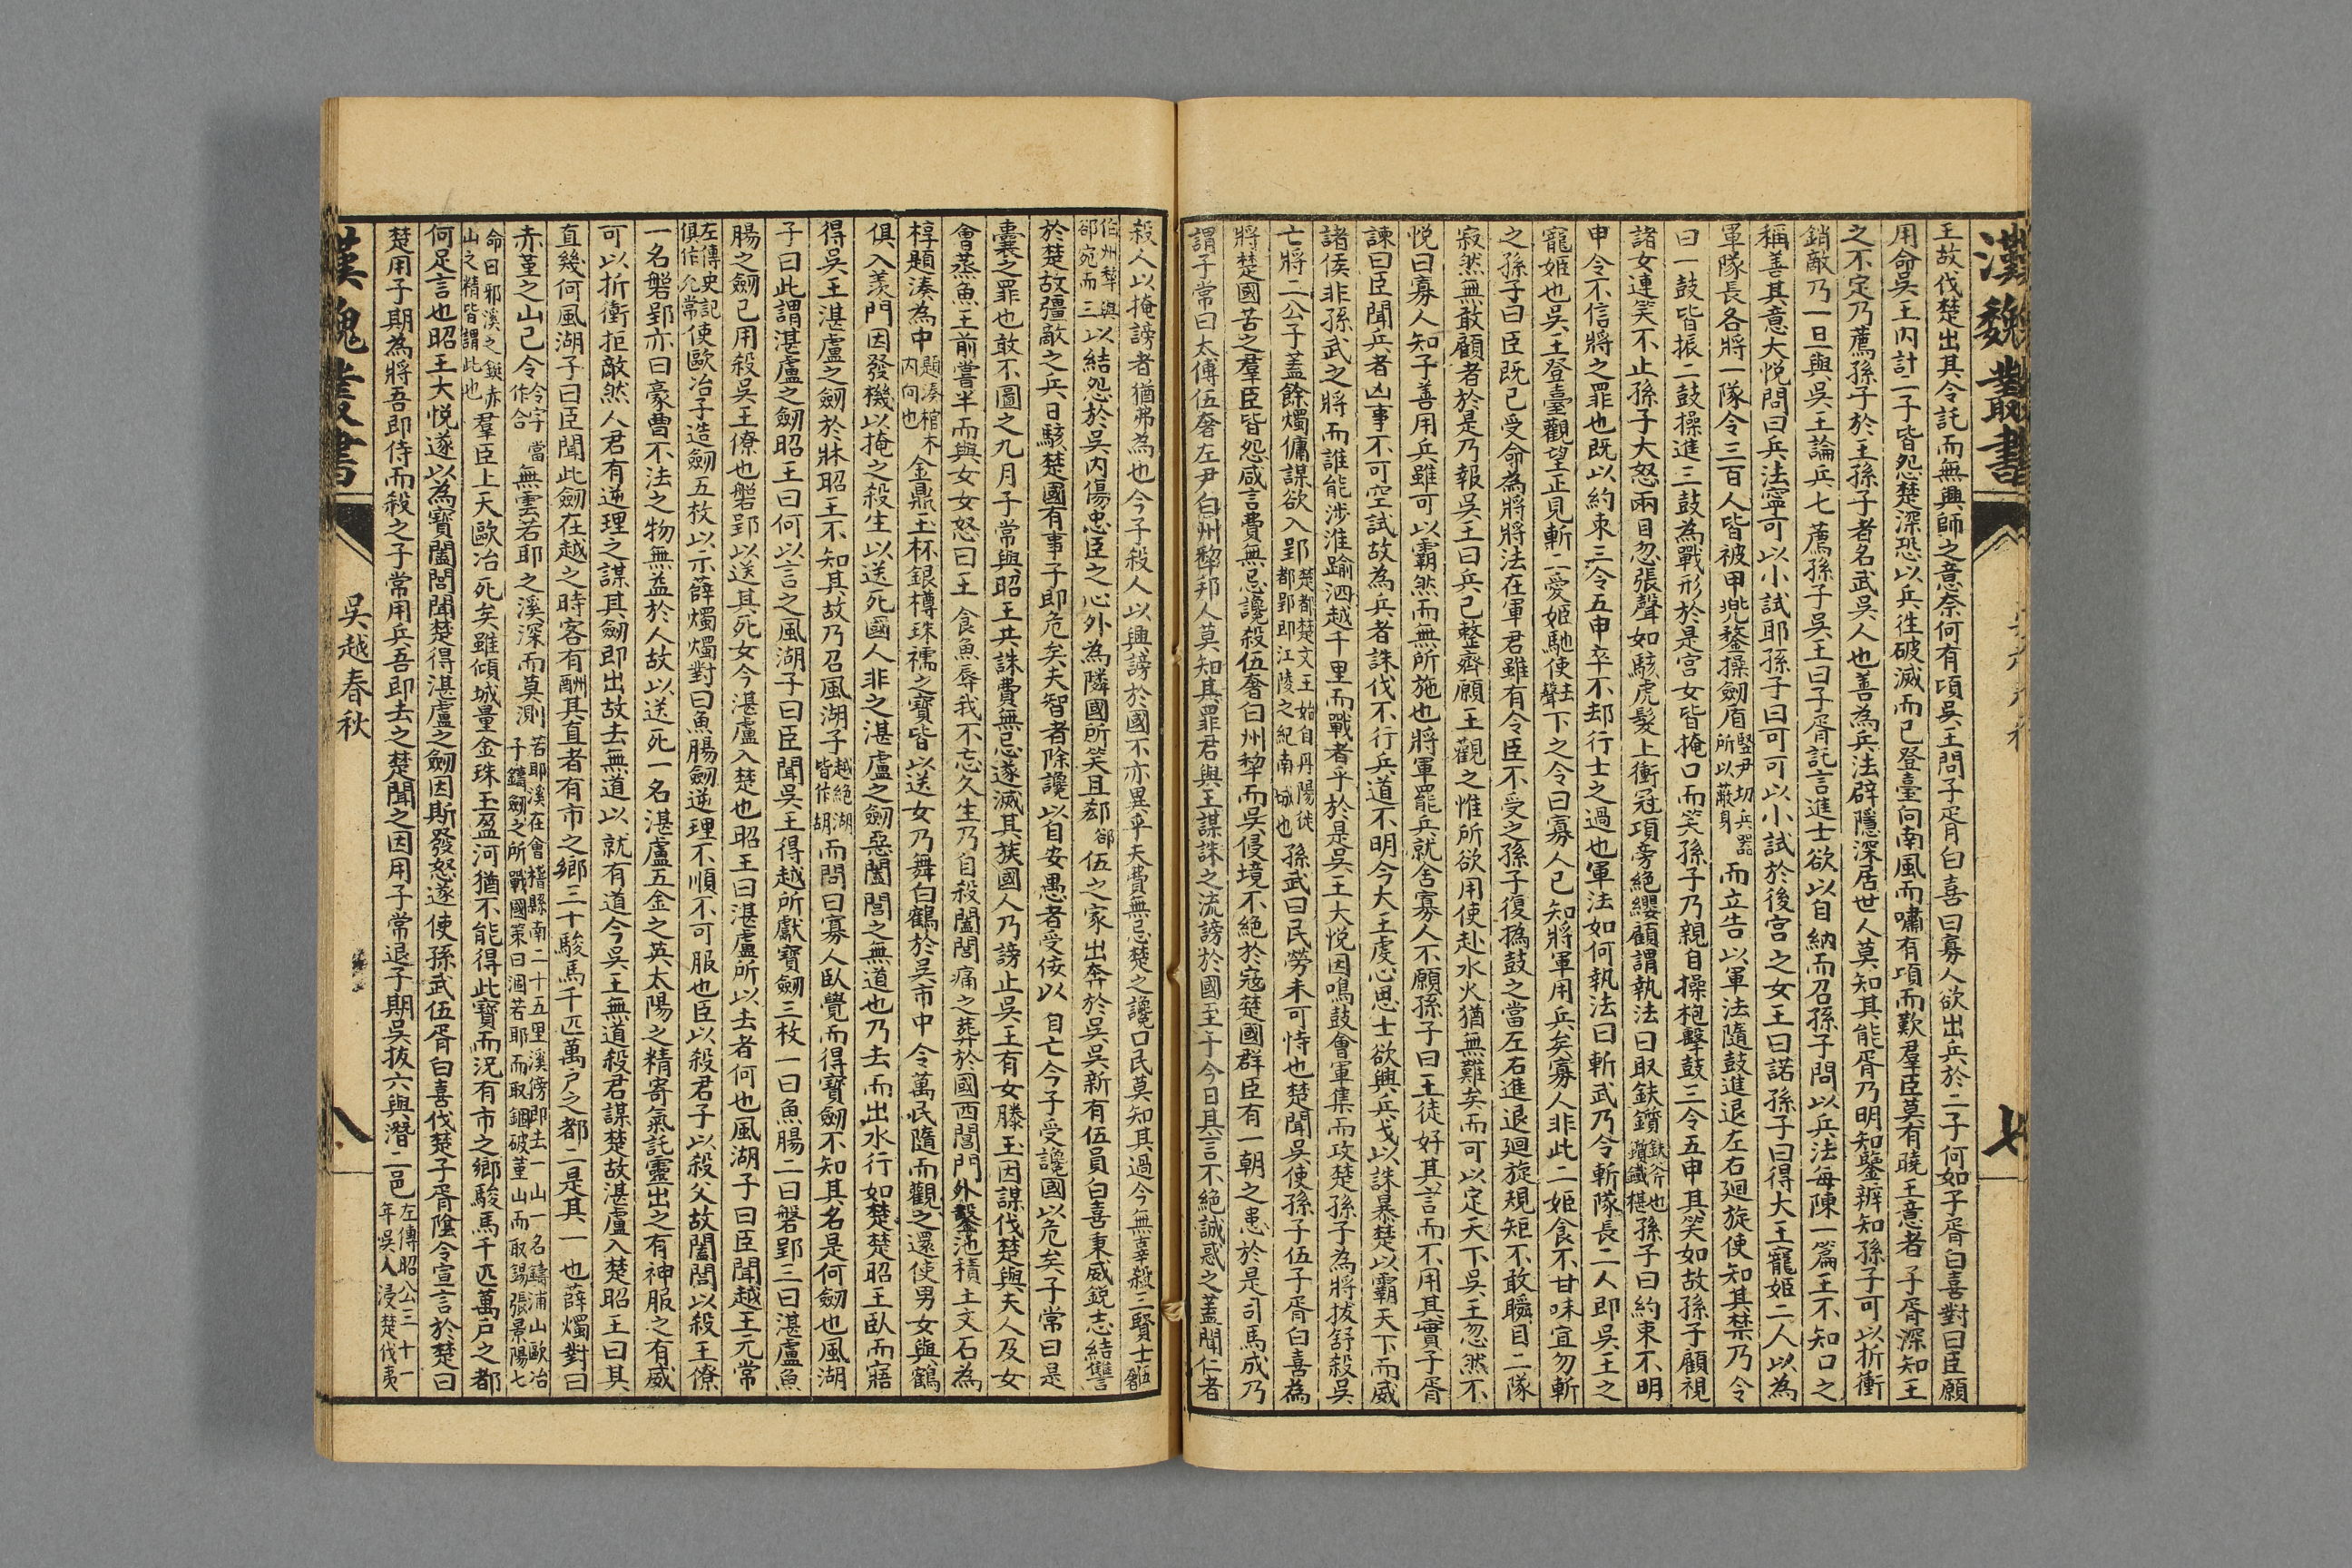 漢魏叢書
七
王故伐楚出其令託而無興師之意奈何有頃吳王問子胥白喜曰寡人欲出兵於二子何如子胥白喜對曰臣願
用命吳王內計二子皆怨楚深恐以兵往破滅而已登臺向南風而嘯有頃而歎羣臣莫有曉王意者子胥深知王
之不定乃薦孫子於王孫子者名武吳人也善為兵法辟隱深居世人莫知其能胥乃明知鑒辨知孫子可以折衝
銷敵乃一旦與吳王論兵七薦孫子吳王曰子胥託言進士欲以自納而召孫子問以兵法每陳一篇王不知口之
稱善其意大悅問曰兵法寧可以小試耶孫子曰可可以小試於後宮之女王曰諾孫子曰得大王寵姬二人以為
軍隊長各將一隊令三百人皆被甲兜鍪操劒盾豎尹切兵器所以蔽身而立告以軍法隨鼓進退左右廻旋使知其禁乃令
曰一鼓皆振二鼓操進三鼓為戰形於是宮女皆掩口而笑孫子乃親自操枹擊鼓三令五申其笑如故孫子顧視
諸女連笑不止孫子大怒兩目忽張聲如駭虎髮上衝冠項旁絕纓顧謂執法曰取鈇鑕鈇斧也鑕鐵椹孫子曰約束不明
申令不信將之罪也既以約束三令五申卒不却行士之過也軍法如何執法曰斬武乃令斬隊長二人即吳王之
寵姬也吳王登臺觀望正見斬二愛姬馳使下之令曰寡人已知將軍用兵矣寡人非此二姬食不甘味宜勿斬
之孫子曰臣既已受命為將將法在軍君雖有令臣不受之孫子復撝鼓之當左右進退廻旋規矩不敢瞬目二隊
寂然無敢顧者於是乃報吳王曰兵已整齊願王觀之惟所欲用使赴水火猶無難矣而可以定天下吳王忽然不
悅曰寡人知子善用兵雖可以霸然而無所施也將軍罷兵就舍寡人不願孫子曰王徒好其言而不用其實子胥
諫曰臣聞兵者凶事不可空試故為兵者誅伐不行兵道不明今大王虔心思士欲興兵戈以誅暴楚以霸天下而威
諸侯非孫武之將而誰能涉淮踰泗越千里而戰者乎於是吳王大悅因鳴鼓會軍集而攻楚孫子為將拔舒殺吳
亡將二公子蓋餘燭傭謀欲入郢楚都楚文王始自丹陽徙都郢即江陵之紀南城也孫武曰民勞未可恃也楚聞吳使孫子伍子胥白喜為
將楚國苦之羣臣皆怨咸言費無忌讒殺伍奢白州犂而吳侵境不絕於寇楚國群臣有一朝之患於是司馬成乃
謂子常曰太傅伍奢左尹白州犂邦人莫知其罪君與王謀誅之流謗於國至于今日其言不絕誠惑之蓋聞仁者
殺人以掩謗者猶弗為也今子殺人以興謗於國不亦異乎夫費無忌楚之讒口民莫知其過今無辜殺三賢士伍奢
伯州犂與郤宛而三以結怨於吳內傷忠臣之心外為隣國所笑且郄郤伍之家出奔於吳吳新有伍員白喜秉威銳志結讐
於楚故彊敵之兵日駭楚國有事子即危矣夫智者除讒以自安愚者受佞以自亡今子受讒國以危矣子常曰是
囊之罪也敢不圖之九月子常與昭王共誅費無忌遂滅其族國人乃謗止吳王有女滕玉因謀伐楚與夫人及女
會蒸魚王前嘗半而與女女怒曰王食魚辱我不忘久生乃自殺闔閭痛之葬於國西閶門外鑿池積土文石為
椁題湊為中題湊棺木內向也金鼎玉杯銀樽珠襦之寶皆以送女乃舞白鶴於吳市中令萬民隨而觀之還使男女與鶴
俱入羨門因發機以掩之殺生以送死國人非之湛盧之劒惡闔閭之無道也乃去而出水行如楚楚昭王臥而寤
得吳王湛盧之劒於牀昭王不知其故乃召風湖子越絕湖皆作胡而問曰寡人臥覺而得寶劒不知其名是何劒也風湖
子曰此謂湛盧之劒昭王曰何以言之風湖子曰臣聞吳王得越所獻寶劒三枚一曰魚腸二曰磐郢三曰湛盧魚
腸之劒已用殺吳王僚也磐郢以送其死女今湛盧入楚也昭王曰湛盧所以去者何也風湖子曰臣聞越王元常
左傳史記俱作允常使歐冶子造劒五枚以示薛燭燭對曰魚腸劒逆理不順不可服也臣以殺君子以殺父故闔閭以殺王僚
一名磐郢亦曰豪曹不法之物無益於人故以送死一名湛盧五金之英太陽之精寄氣託靈出之有神服之有威
可以折衝拒敵然人君有逆理之謀其劒即出故去無道以就有道今吳王無道殺君謀楚故湛盧入楚昭王曰其
直幾何風湖子曰臣聞此劒在越之時客有酬其直者有市之鄉三十駿馬千匹萬戶之都二是其一也薛燭對曰
赤堇之山已令令字當作合無雲若耶之溪深而莫測若耶溪在會稽縣南二十五里溪傍即去一山一名鑄浦山歐冶子鑄劒之所戰國策曰涸若耶而取銅破堇山而取錫張景陽七
命曰邪溪之鋌赤山之精皆謂此也羣臣上天歐冶死矣雖傾城量金珠玉盈河猶不能得此寶而況有市之鄉駿馬千匹萬戶之都
何足言也昭王大悅遂以為寶闔閭聞楚得湛盧之劒因斯發怒遂使孫武伍胥白喜伐楚子胥陰令宣言於楚曰
楚用子期為將吾即待而殺之子常用兵吾即去之楚聞之因用子常退子期吳拔六與潛二邑左傳昭公三十一年吳人浸楚伐夷
漢魏叢書
吳越春秋
八